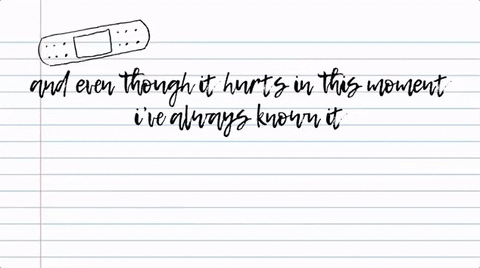 and even though it hurts in this moment
i've always known it